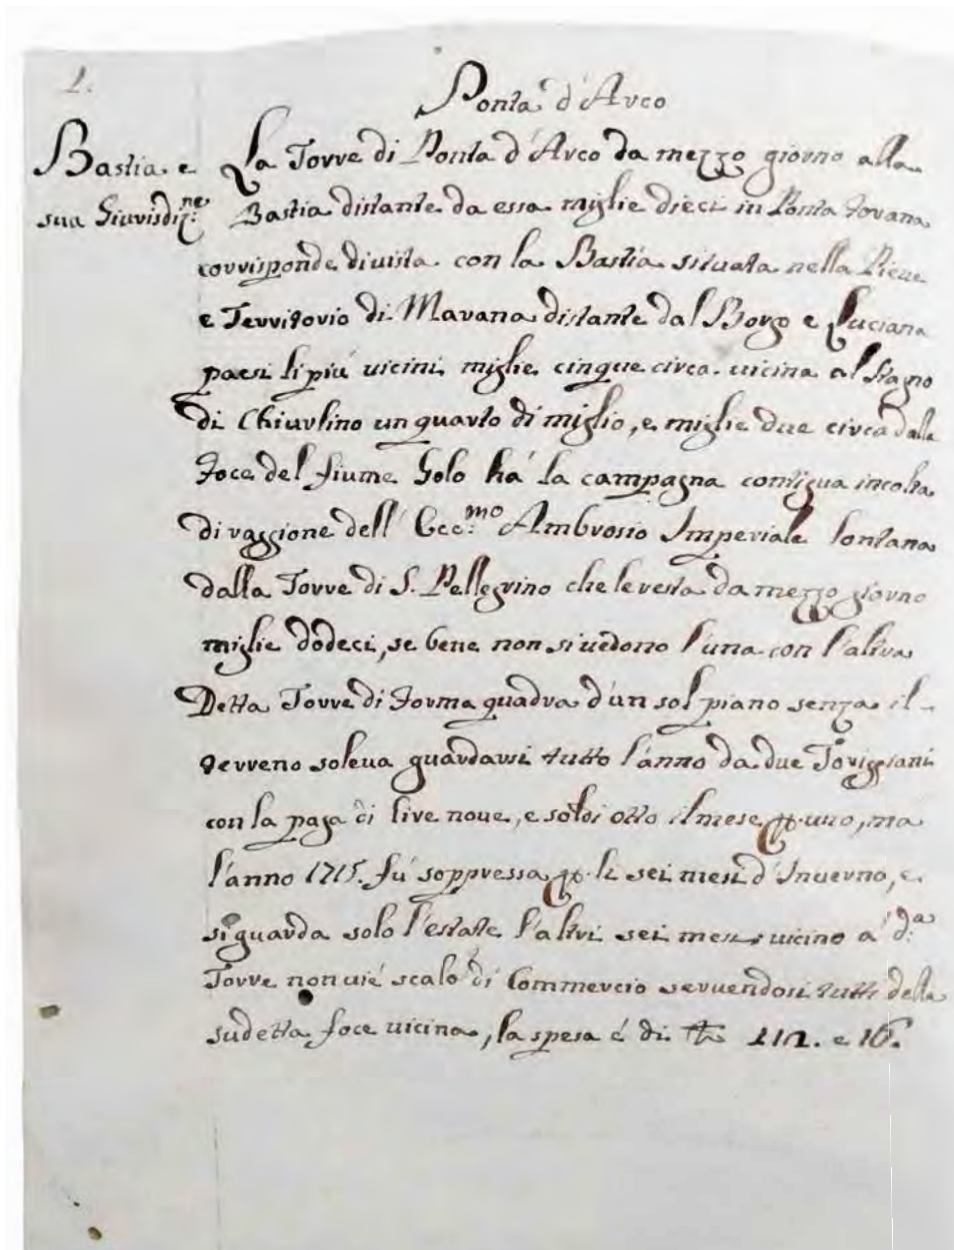 1.
Ponta d'Arco
Bastia e
sua Giurisdiz:ne
La Torre di Ponta d'Arco da mezzo giorno alla
Bastia distante da essa miglie dieci in Ponta tovana
corrisponde di vista con la Bastia situata nella Pieve
e Territorio di Marana distante dal Borgo e Luciana
paesi li più vicini miglie cinque circa vicina al stagno
di Chiurlino un quarto di miglio, e miglie due circa dalla
foce del fiume Golo há la campagna contigua incolta
di raggione dell' Ecc:mo Ambrosio Imperiale lontana
dalla Torre di S. Pellegrino che le resta da mezzo giorno
miglie dodeci, se bene non si vedono l'una con l'altra
Detta Torre di forma quadra d'un sol piano senza il
terreno soleva guardarsi tutto l'anno da due Torriggiani
con la paga di lire nove, e soldi otto il mese p. uno, ma
l'anno 1715. fú soppressa p. li sei mesi d'Inverno, e
si guarda solo l'estate l'altri sei mesi vicino a' d:a
Torre non vié scalo di Commercio servendosi tutti della
sudetta foce vicina, la spesa é di £ 112. e 16.